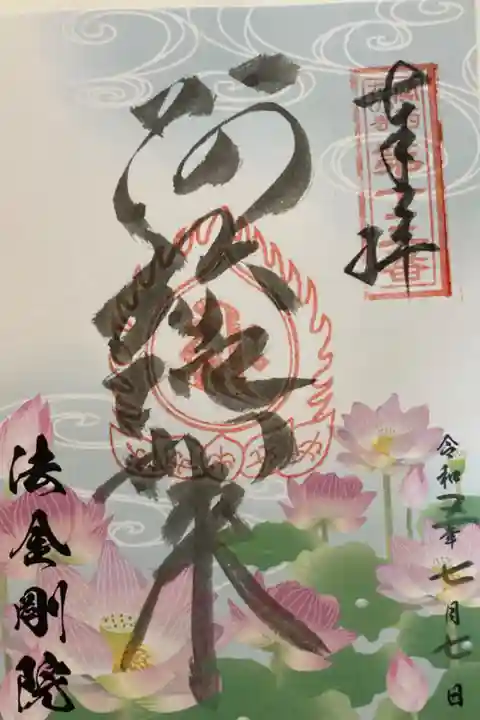 奉拝
阿弥陀如来
法金剛院
令和五年七月七日